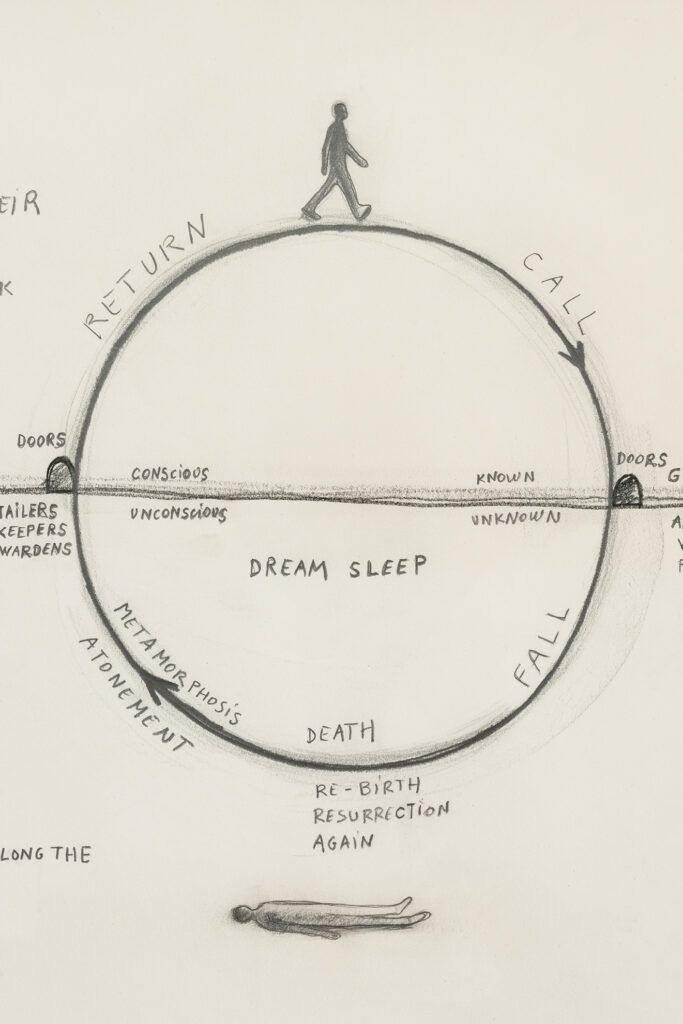 EIR
K
RETURN
CALL
DOORS
DOORS
CONSCIOUS
KNOWN
G
TAILERS
KEEPERS
WARDENS
UNCONSCIOUS
UNKNOWN
A
V
F
DREAM SLEEP
FALL
METAMORPHOSIS
ATONEMENT
DEATH
RE-BIRTH
RESURRECTION
AGAIN
LONG THE